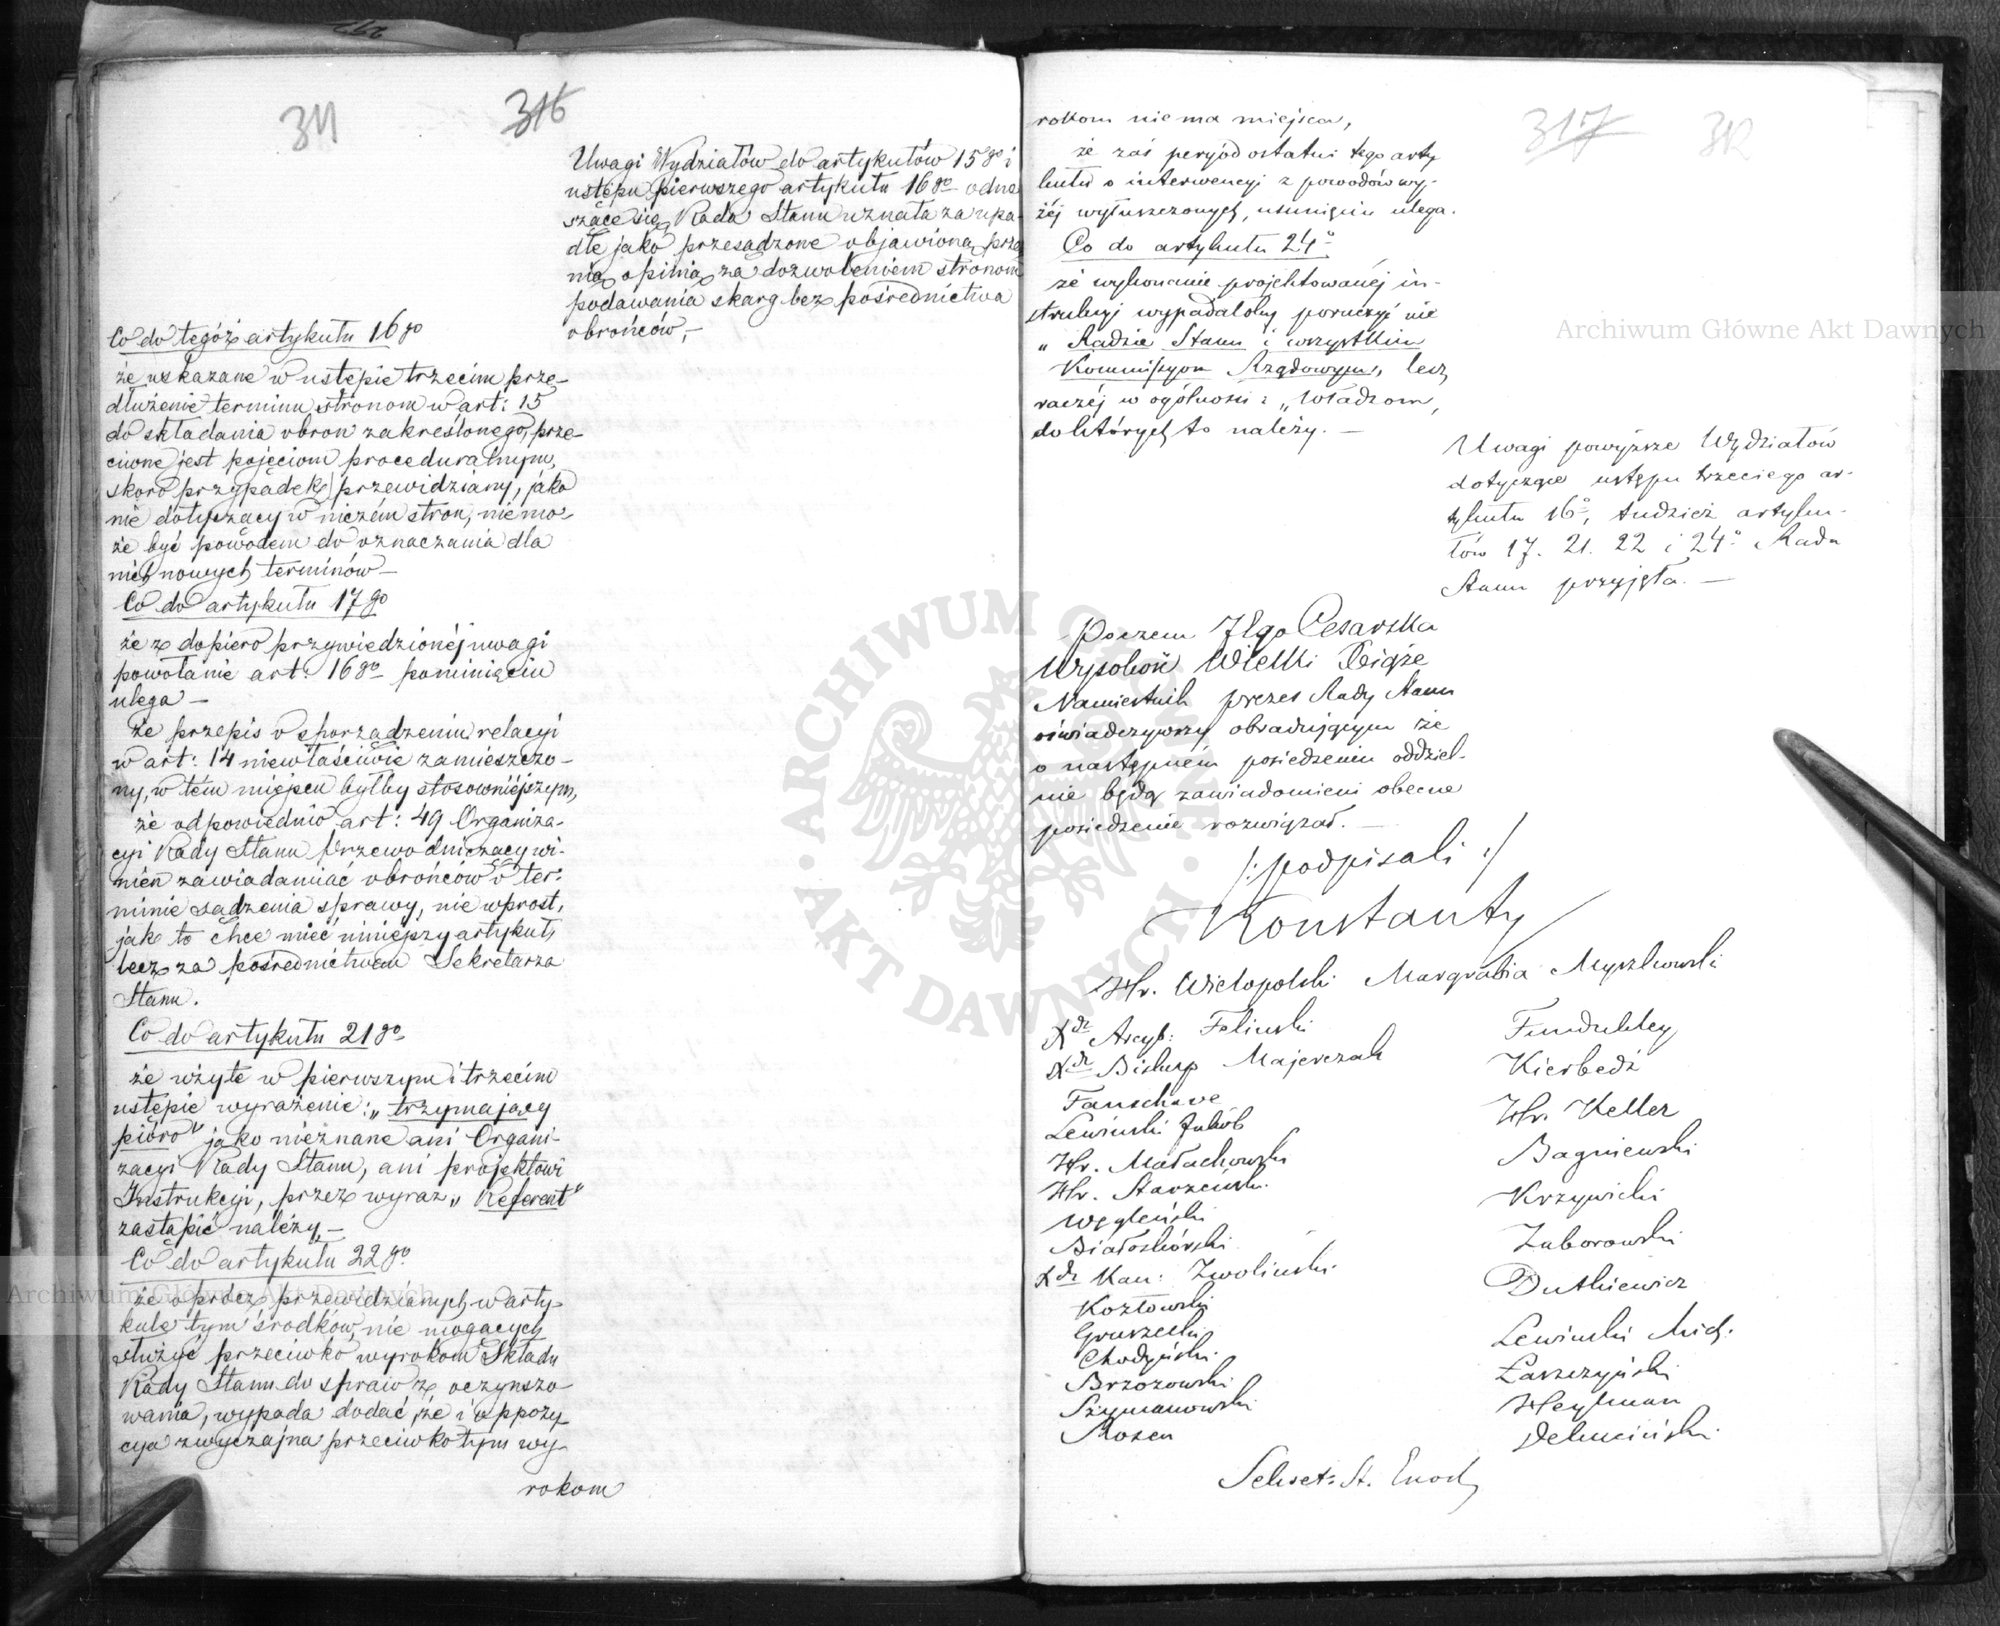 311
316
Uwagi Wydziałów do artykułów 15go i
ustępu pierwszego artykułu 16go odno
szące się, Rada Stanu uznała za upa-
dłe jako przesądzone objawioną prze
nią opinią za dozwoleniem stronom
podawania skarg bez pośrednictwa
obrońców,-
Co do tegóż artykułu 16go
że wskazane w ustępie trzecim prze-
dłużenie terminu stronom w art: 15
do składania obron zakreślonego, prze-
ciwne jest pojęciom proceduralnym,
skoro przypadek przewidziany, jako
nie dotyczący w niczém stron, nie mo-
że być powodem do oznaczania dla
nich nowych terminów-
Co do artykułu 17go
że z dopiero przywiedzionéj uwagi
powołanie art: 16go pominięciu
ulega-
że przepis o sporządzeniu relacyi
w art: 14 niewłaściwie zamieszczo-
ny, w tém miejscu byłby stosowniejszym,
że odpowiednio art: 49 Organiza-
cyi Rady Stanu Przewodniczący wi-
nien zawiadamiac obrońców o ter-
minie sądzenia sprawy, nie wprost,
jak to chce mieć niniejszy artykuł,
lecz za pośrednictwem Sekretarza
Stanu.
Co do artykułu 21go
że użyte w pierwszym i trzecim
ustępie wyrażenie: „trzymający
pióro” jako nieznane ani Organi-
zacyi Rady Stanu, ani projektowi
Instrukcyi, przez wyraz „Referent”
zastąpić należy,-
Co do artykułu 22go
że oprócz przewidzianych w arty-
kule tym środków, nie mogących
służyć przeciwko wyrokom Składu
Rady Stanu do spraw z oczynszo-
wania, wypada dodać, że i oppozy-
cya zwyczajna przeciwko tym wy-
rokom
317
312
rokom nie ma miejsca,
że zaś peryod ostatni tego arty
kułu o interwencyi z powodów wy-
żéj wyłuszczonych, usunięciu ulega.
Co do artykułu 24o
że wykonanie projektowanéj in-
strukcyi wypadałoby poruczyć nie
„Radzie Stanu i wszystkim
Kommissyom Rządowym, lecz
raczéj w ogólności: „Władzom,
do których to należy.-
Uwagi powyższe Wydziałów
dotyczące ustępu trzeciego ar-
tykułu 16o, tudzież artyku-
łów 17. 21. 22 i 24o Rada
Stanu przyjęła.-
Poczem Jego Cesarska
Wysokość Wielki Xiąże
Namiestnik prezes Rady Stanu
oświadczywszy obradującym że
o następném posiedzeniu oddziel-
nie będą zawiadomieni obecne
posiedzenie rozwiązał.-
/: podpisali :/
Konstanty
Hr. Wielopolski Margrabia Myszkowski
Xdz Arcyb: Feliński
Xdz Biskup Majerczak
Fanschave
Lewiński Jakób
Hr. Małachowski
Hr. Starzeński
Węgleński
Białoskórski
Xdz Kan: Zwoliński
Kozłowski
Gruszecki
Chodyński
Brzozowski
Szymanowski
Rosen
Fundukley
Kierbedź
Hr. Keller
Bagniewski
Krzywicki
Zaborowski
Dutkiewicz
Lewiński Mich.
Łaszczyński
Heylman
Sekret: St. Enoch
Archiwum Główne Akt Dawnych
Archiwum Główne Akt Dawnych
ARCHIWUM GŁÓWNE AKT DAWNYCH